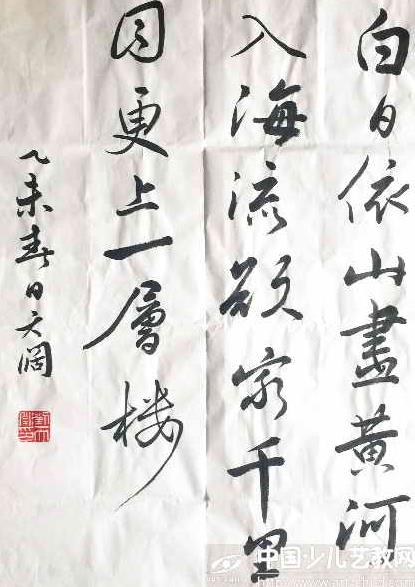 白日依山盡黄河
入海流欲穷千里
目更上一層楼
乙未春日天阔
中国少儿艺教网